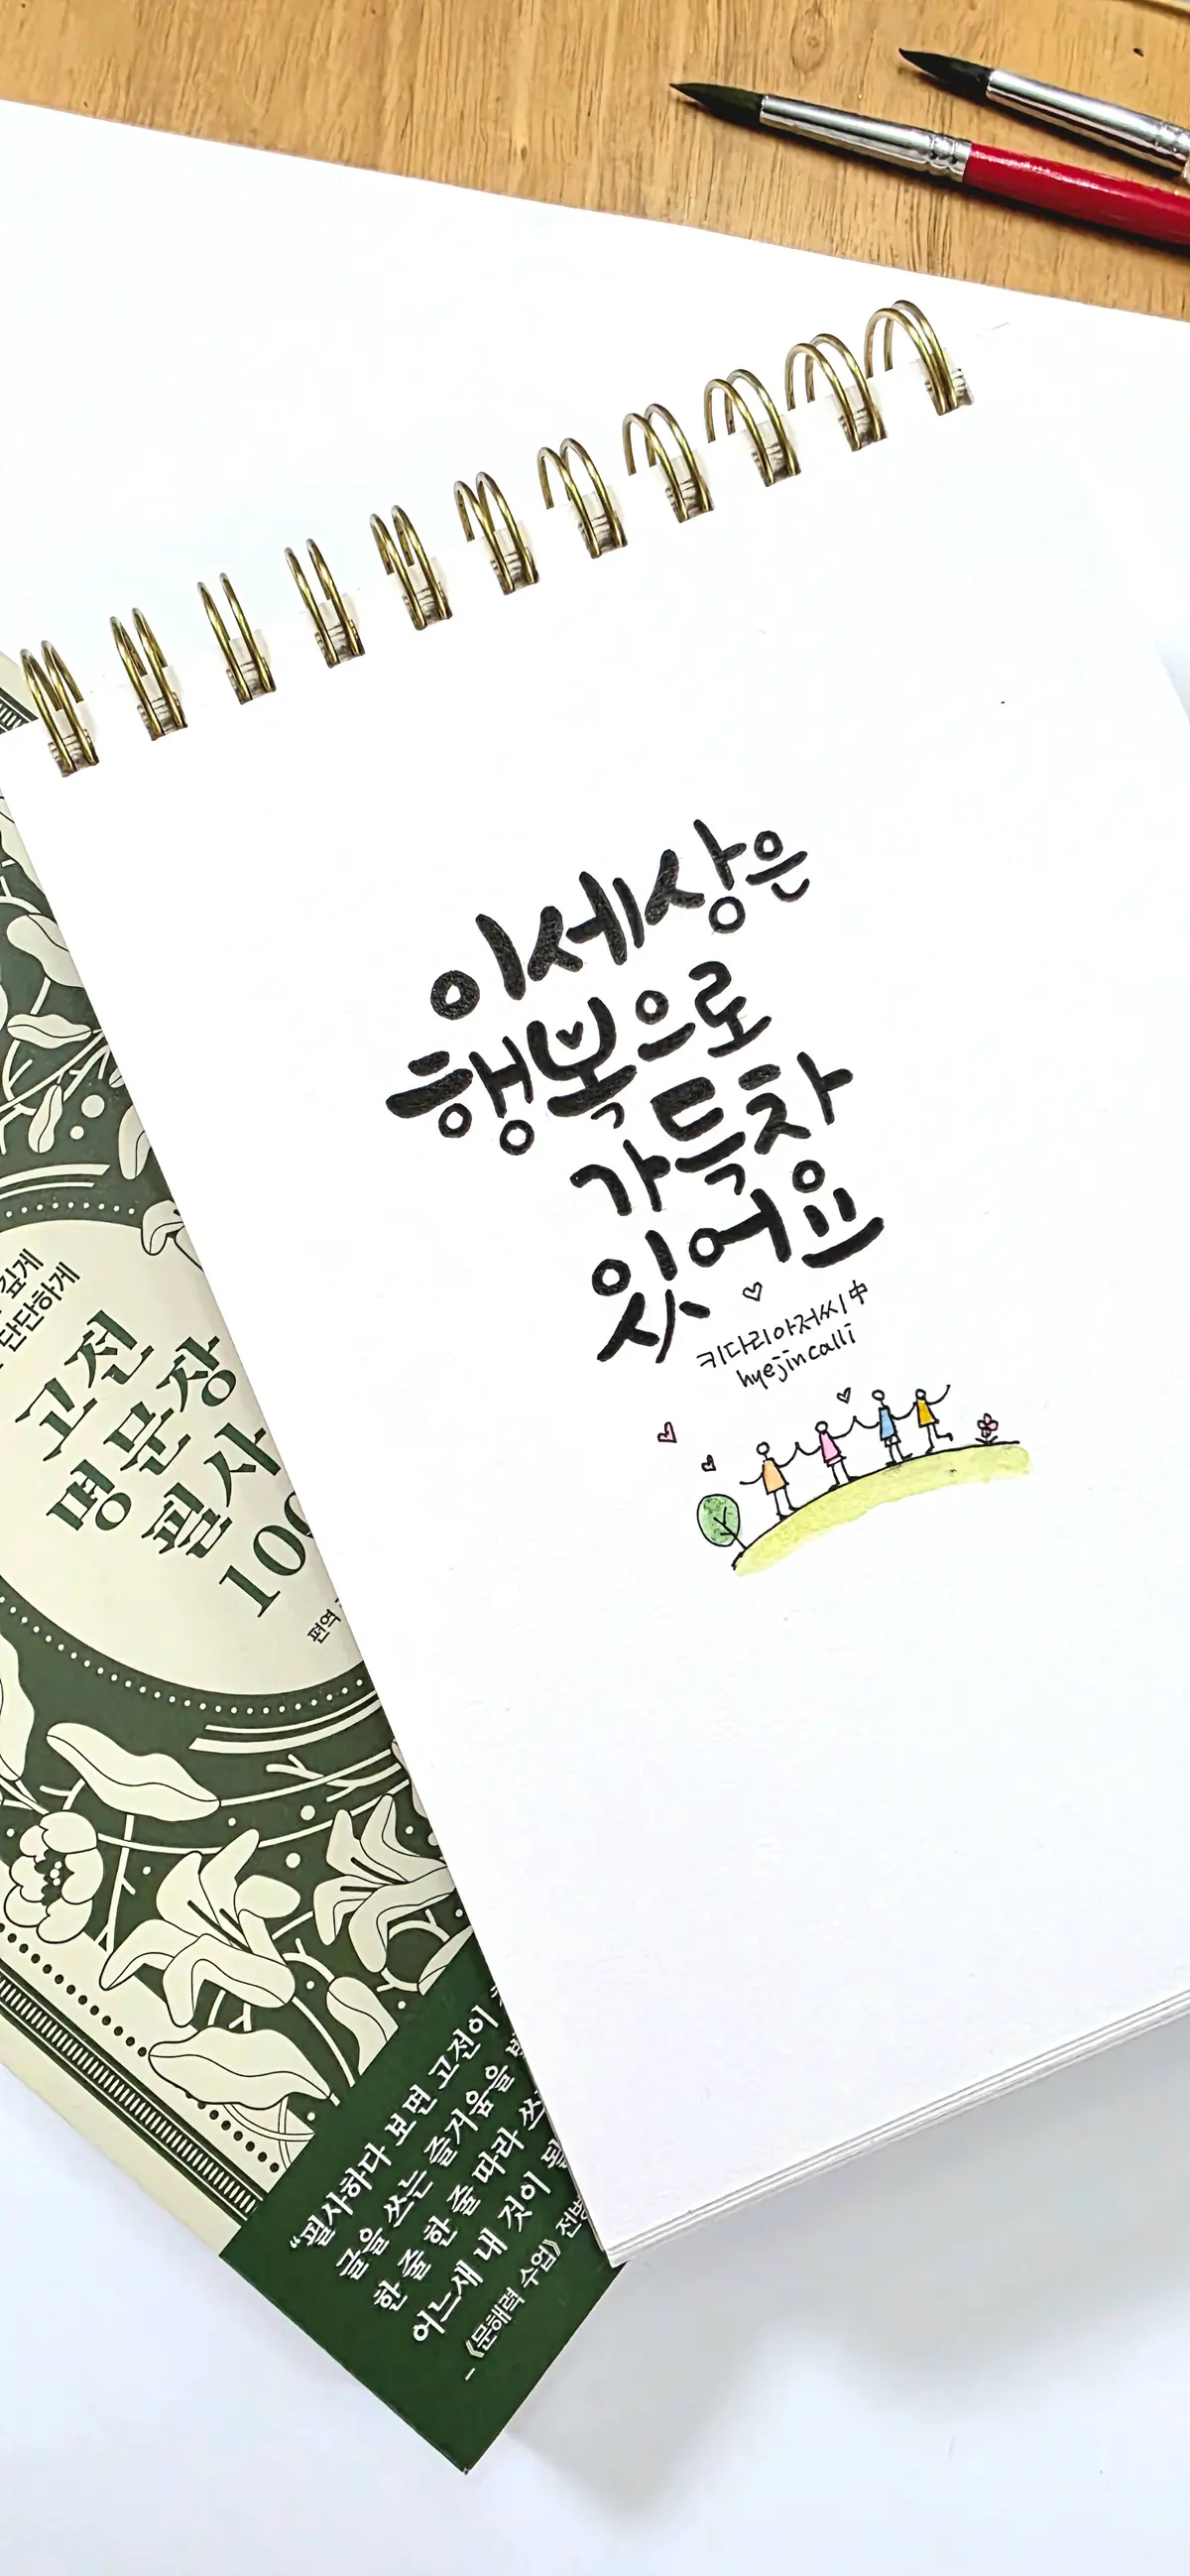 이 세상은
행복으로
가득차
있어요
키다리아저씨 中
hyejincalli
깊게
단단하게
고전
명문장
필사
100
편역
“필사하다 보면 고전이
글을 쓰는 즐거움을
한 줄 한 줄 따라
어느새 내 것이
- 《문해력 수업》